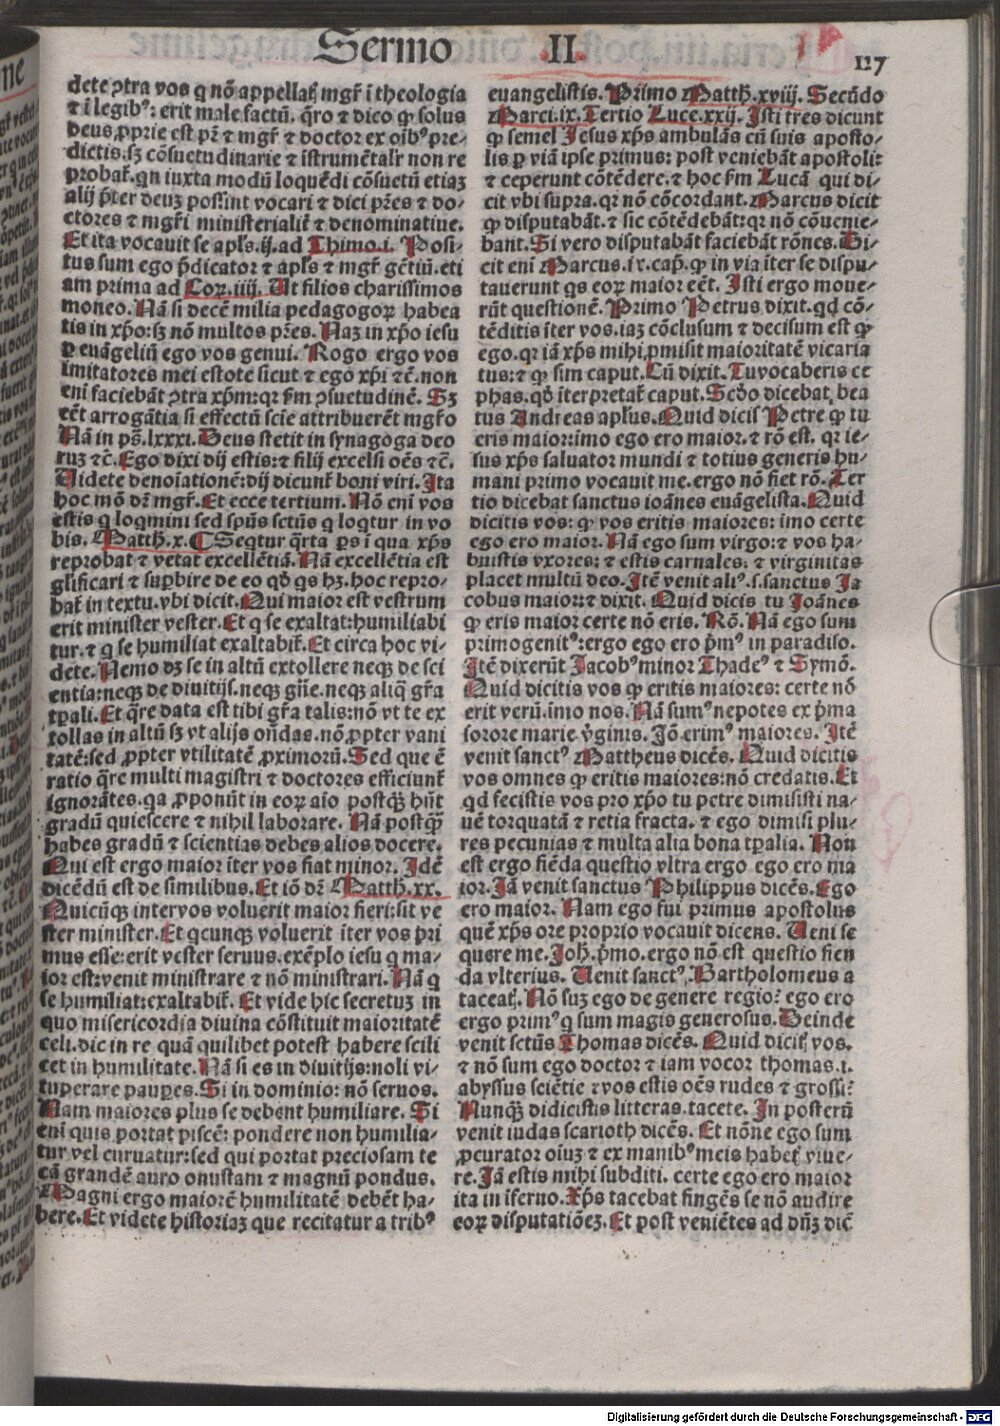 Sermo II. 127
dete ꝯtra vos q nō appellatꝭ mgr̄ ī theologia
⁊ ī legibꝰ: erit male factū. q̄ro ⁊ dico ꝙ solus
deus ꝓprie est pr̄ ⁊ mgr̄ ⁊ doctor ex oībꝰ pre-
dictis. sꝫ cōsuetudinarie ⁊ īstrumētalr̄ non re
probat̄. qn iuxta modū loquēdi cōsuetū etiaꝫ
alij p̄ter deuꝫ possint vocari ⁊ dici pr̄es ⁊ do-
ctores ⁊ mgr̄i ministerialit̄ ⁊ denominatiue.
Et ita vocauit se apl̄s. ij. ad Thimo. i. Posi-
tus sum ego p̄dicator ⁊ apl̄s ⁊ mgr̄ gētiū. eti
am prima ad Coꝝ. iiij. Ut filios charissimos
moneo. Nā si decē milia pedagogoꝝ habea
tis in xp̄o: sꝫ nō multos pr̄es. Naꝫ in xp̄o iesu
ꝑ euāgeliū ego vos genui. Rogo ergo vos
imitatores mei estote sicut ⁊ ego xp̄i ⁊c̄. non
eni faciebāt ꝯtra xp̄m: qꝛ ẜm ꝯsuetudinē. Sꝫ
eēt arrogātia si effectū scīe attribuerēt mgr̄o
Nā in ps̄. lxxxi. Deus stetit in synagoga deo
ruꝫ ⁊c̄. Ego dixi dij estis: ⁊ filij excelsi oēs ⁊c̄.
Videte denoīationē: dij dicunt̄ boni viri. Ita
hoc mō dr̄ mgr̄. Et ecce tertium. Nō eni vos
estis q loqmini sed spūs sctūs q loqtur in vo
bis. Matth. x. ¶ Seqtur q̄rta ꝑs ī qua xp̄s
reprobat ⁊ vetat excellētiā. Nā excellētia est
gl̄ificari ⁊ suꝑbire de eo qđ qs hꝫ. hoc repro-
bat̄ in textu. vbi dicit. Qui maior est vestrum
erit minister vester. Et q se exaltat: humiliabi
tur. ⁊ q se humiliat exaltabit̄. Et circa hoc vi-
dete. Nemo dꝫ se in altū extollere neqꝫ de sci
entia: neqꝫ de diuitijs. neqꝫ gn̄e. neqꝫ aliq̄ gr̄a
tꝑali. Et q̄re data est tibi gr̄a talis: nō vt te ex
tollas in altū sꝫ vt alijs on̄das. nō ꝓpter vani
tatē: sed ꝓpter vtilitatē ꝓximorū. Sed que ē
ratio q̄re multi magistri ⁊ doctores efficiunt̄
ignorātes. qa ꝓponūt in eoꝝ aīo postq̄ꝫ hn̄t
gradū quiescere ⁊ nihil laborare. Nā postq̄ꝫ
habes gradū ⁊ scientias debes alios docere.
Qui est ergo maior īter vos fiat minor. Idē
dicēdū est de similibus. Et iō dr̄ Matth. xx.
Quicūqꝫ inter vos voluerit maior fieri: sit ve
ster minister. Et qcunqꝫ voluerit īter vos pri
mus esse: erit vester seruus. exēplo iesu q ma-
ior est: venit ministrare ⁊ nō ministrari. Nā q
se humiliat: exaltabit̄. Et vide hic secretuꝫ in
quo misericordia diuina cōstituit maioritatē
celi. dic in re quā quilibet potest habere scili
cet in humilitate. Nā si es in diuitijs: noli vi-
tuperare pauꝑes. Si in dominio: nō seruos.
Nam maiores plus se debent humiliare. Si
eni quis portat piscē: pondere non humilia-
tur vel curuatur: sed qui portat preciosam te
cā grandē auro onustam ⁊ magnū pondus.
Magni ergo maiorē humilitatē debēt ha-
bere. Et videte historiaꝫ que recitatur a tribꝰ
euangelistis. Primo Matth. xviij. Secūdo
Marci. ix. Tertio Luce. xxij. Isti tres dicunt
ꝙ semel Jesus xp̄s ambulās cū suis aposto-
lis ꝑ viā ipse primus: post veniebāt apostoli:
⁊ ceperunt cōtēdere. ⁊ hoc ẜm Lucā qui di-
cit vbi supra. qꝛ nō cōcordant. Marcus dicit
ꝙ disputabāt. ⁊ sic cōtēdebāt: qꝛ nō cōuenie-
bant. Si vero disputabāt faciebāt rōnes. Di-
cit eni Marcus. ix. cap̄. ꝙ in via īter se dispu-
tauerunt qs eoꝝ maior eēt. Isti ergo moue-
rūt questionē. Primo Petrus dixit. qđ cō-
tēditis īter vos. iaꝫ cōclusum ⁊ decisum est ꝙ
ego. qꝛ iā xp̄s mihi ꝓmisit maioritatē vicaria
tus: ⁊ ꝙ sim caput. Cū dixit. Tu vocaberis ce
phas. qđ īterpretat̄ caput. Scđo dicebat bea
tus Andreas apl̄us. Quid dicis Petre ꝙ tu
eris maior: imo ego ero maior. ⁊ rō est. qꝛ ie-
sus xp̄s saluator mundi ⁊ totius generis hu-
mani primo vocauit me. ergo nō fiet rō. Ter
tio dicebat sanctus ioānes euāgelista. Quid
dicitis vos: ꝙ vos eritis maiores: imo certe
ego ero maior. Nā ego sum virgo: ⁊ vos ha-
buistis vxores: ⁊ estis carnales. ⁊ virginitas
placet multū deo. Itē venit alꝰ. s. sanctus Ja
cobus maior: ⁊ dixit. Quid dicis tu Joānes
ꝙ eris maior certe nō eris. Rō. Nā ego sum
primogenitꝰ: ergo ego ero p̄mꝰ in paradiso.
Itē dixerūt Jacobꝰ minor Thadeꝰ ⁊ Symō.
Quid dicitis vos ꝙ eritis maiores: certe nō
erit verū. imo nos. Nā sumꝰ nepotes ex p̄ma
sorore marie v̄ginis. Iō erimꝰ maiores. Itē
venit sanctꝰ Mattheus dicēs. Quid dicitis
vos omnes ꝙ eritis maiores: nō credatis. Et
qđ fecistis vos pro xp̄o tu petre dimisisti na-
uē torquatā ⁊ retia fracta. ⁊ ego dimisi plu-
res pecunias ⁊ multa alia bona tꝑalia. Non
est ergo fiēda questio vltra ergo ego ero ma
ior. Iā venit sanctus Philippus dicēs. Ego
ero maior. Nam ego fui primus apostolus
quē xp̄s ore proprio vocauit dicens. Veni se
quere me. Joh. p̄mo. ergo nō est questio fien
da vlterius. Venit sanctꝰ Bartholomeus a
taceatꝭ. Nō suꝫ ego de genere regio: ego ero
ergo primꝰ q sum magis generosus. Deinde
venit sctūs Thomas dicēs. Quid dicitꝭ vos.
⁊ nō sum ego doctor ⁊ iam vocor thomas. i.
abyssus sciētie ⁊ vos estis oēs rudes ⁊ grossi:
Nunq̄ꝫ didicistis litteras. tacete. In posterū
venit iudas scarioth dicēs. Et nōne ego sum
ꝓcurator oīuꝫ ⁊ ex manibꝰ meis habetꝭ viue-
re. Iā estis mihi subditi. certe ego ero maior
ita in īferno. Xp̄s tacebat fingēs se nō audire
eoꝝ disputatiōeꝫ. Et post veniētes ad dn̄ꝫ dic̄
Digitalisierung gefördert durch die Deutsche Forschungsgemeinschaft - DFG